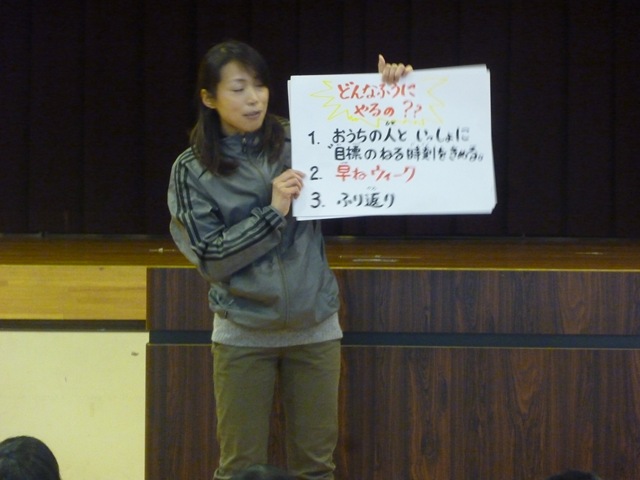 どんなふうに
やるの??
1. おうちの人と いっしょに
目標のねる時刻をきめる。
2. 早ねウィーク
3. ふり返り